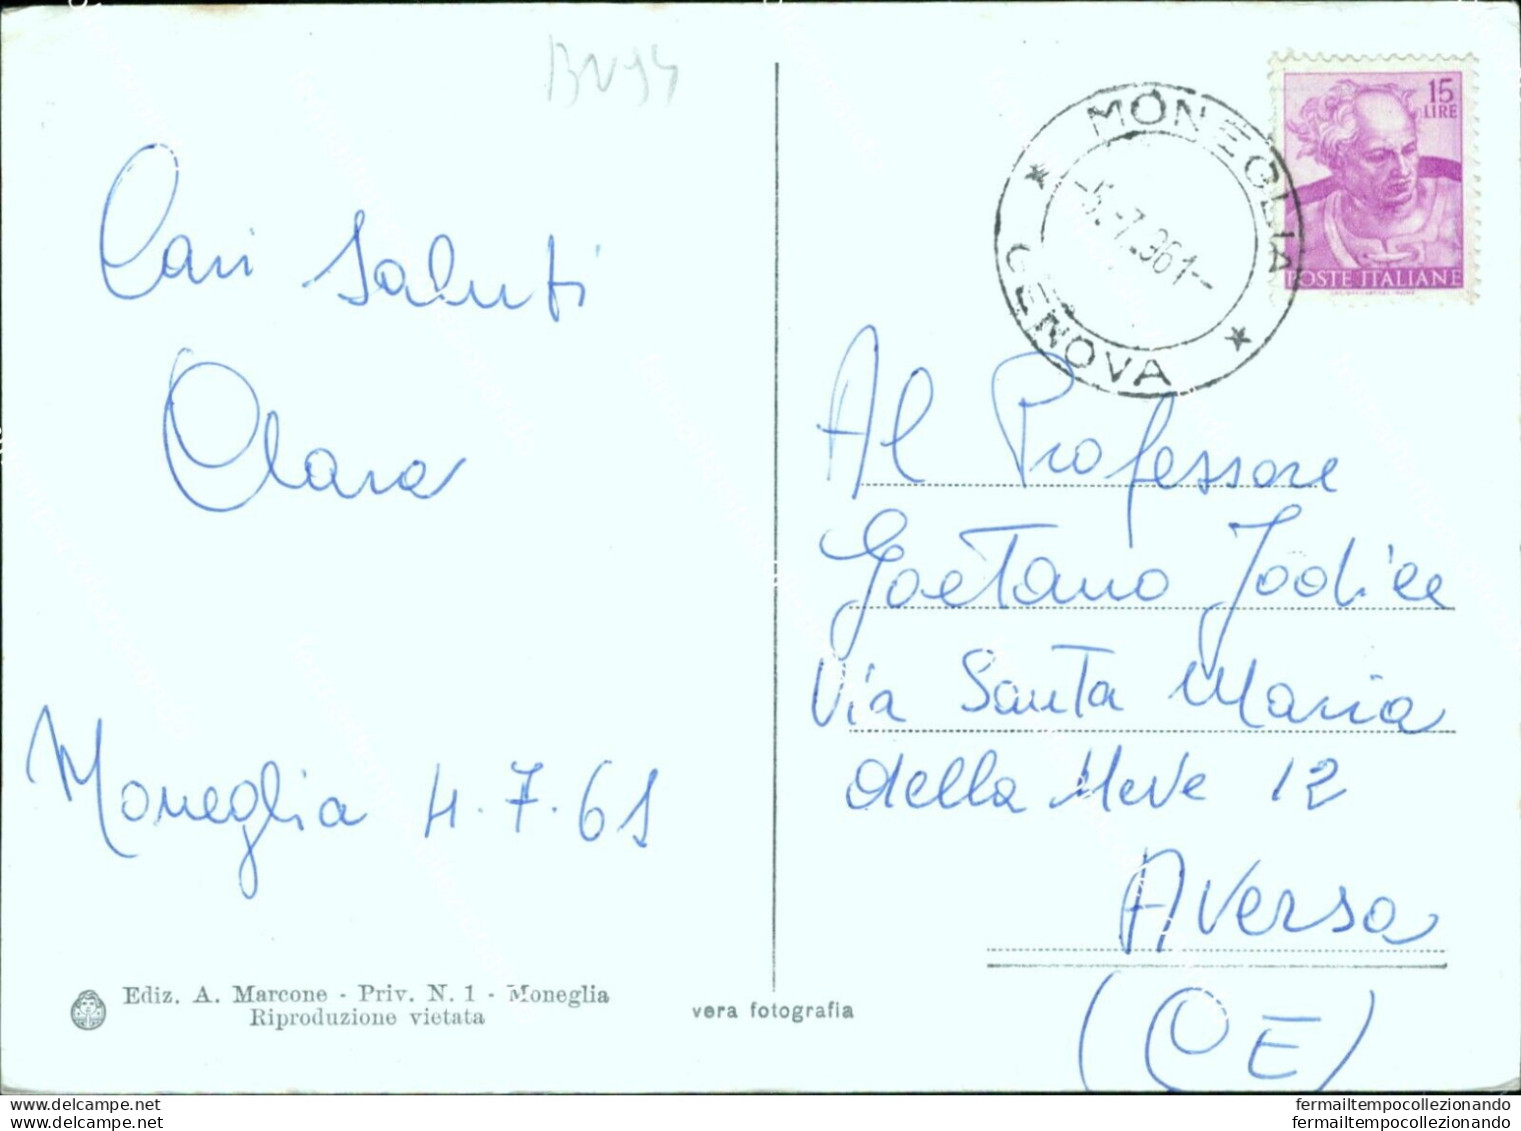 BN94
Cari saluti
Clara
Moneglia 4.7.61
Ediz. A. Marcone - Priv. N. 1 - Moneglia
Riproduzione vietata
vera fotografia
MONEGLIA
GENOVA
-5.-7.961-
15
LIRE
POSTE ITALIANE
Al Professore
Gaetano Jodice
Via Santa Maria
della Neve 12
Aversa
(CE)
fermailtempocollezionando
fermailtempocollezionando
fermailtempocollezionando
fermailtempocollezionando